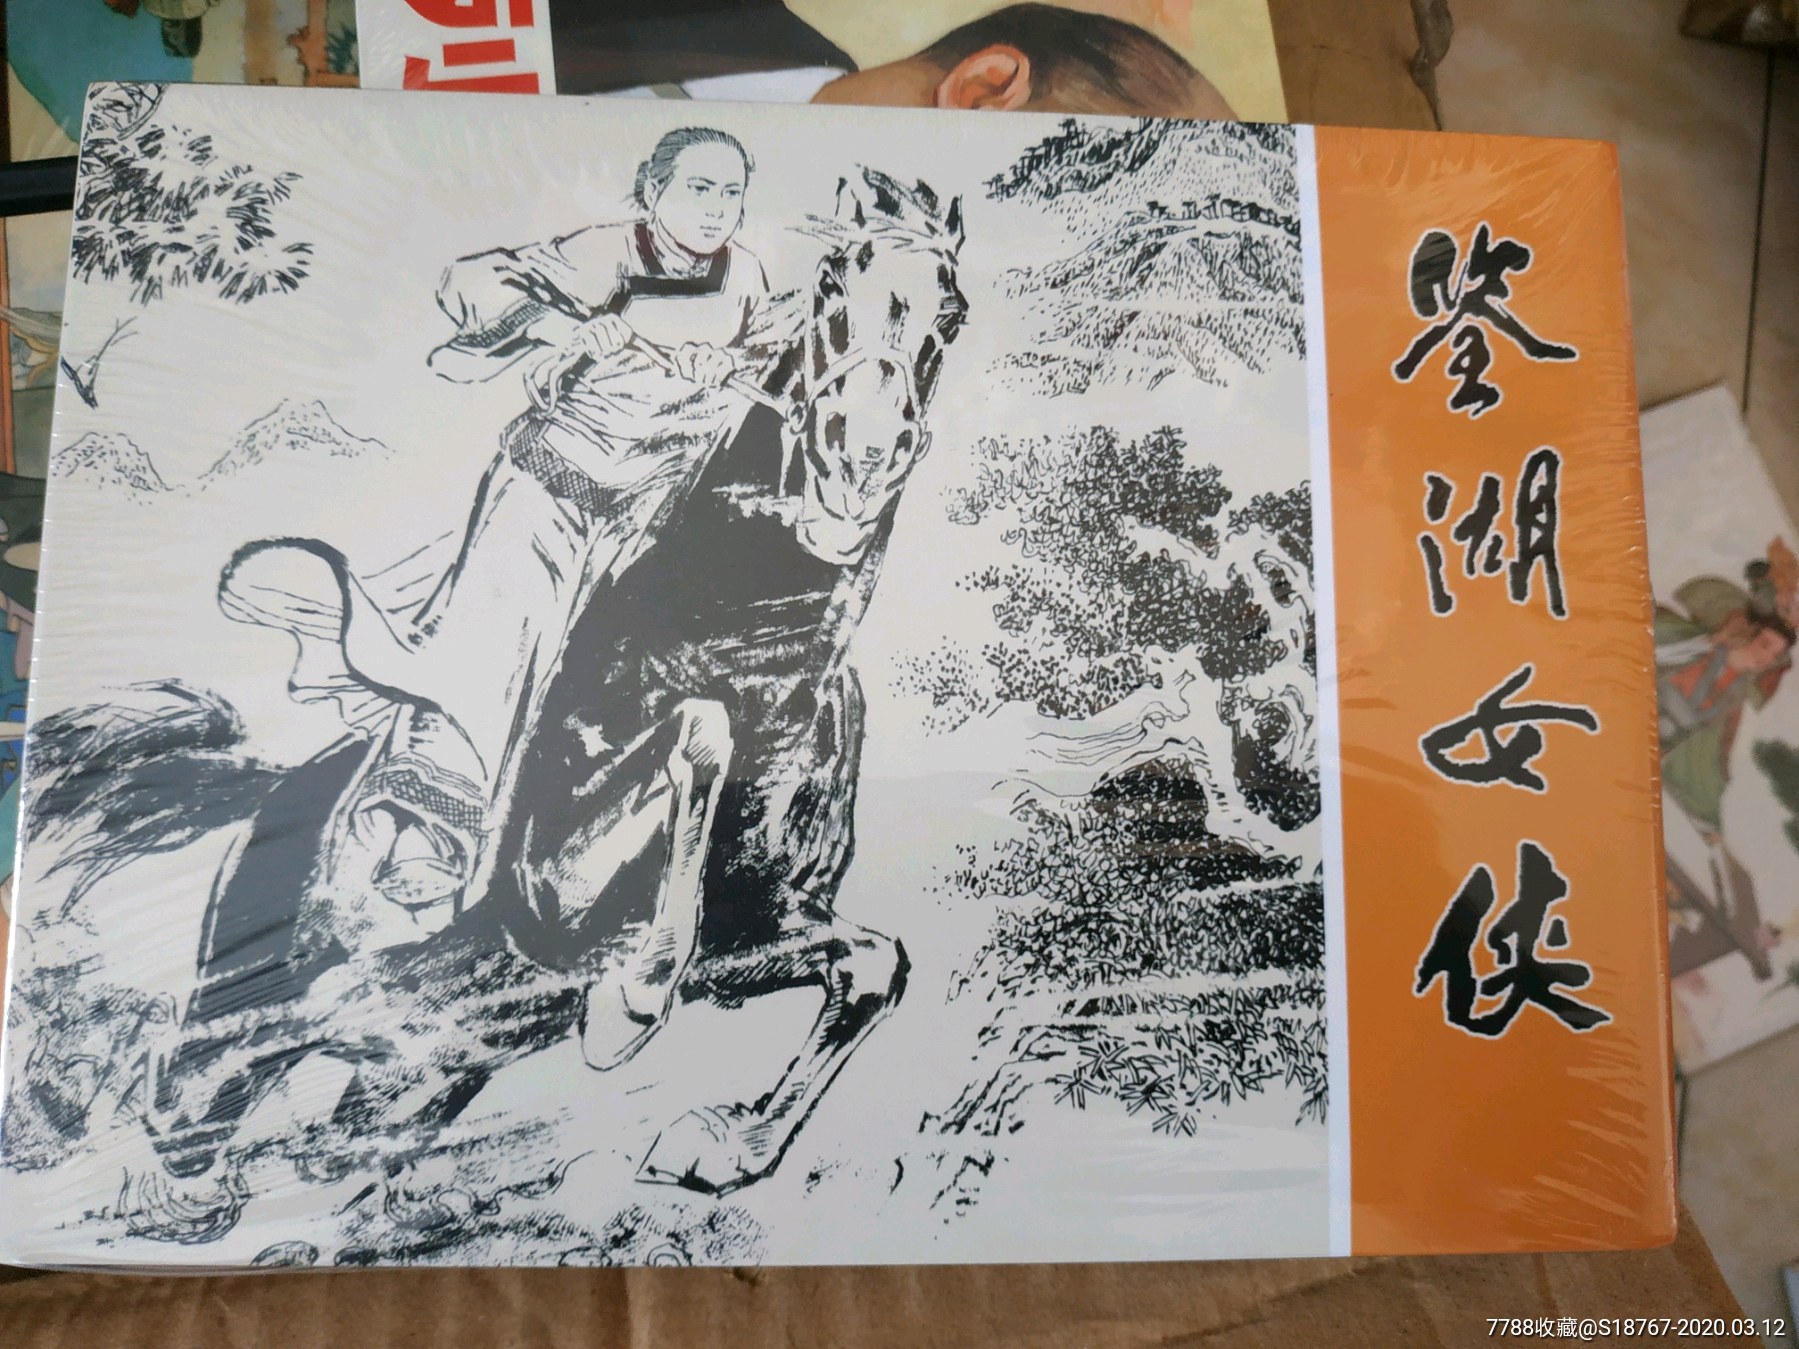 鉴湖女侠
7788收藏@S18767-2020.03.12